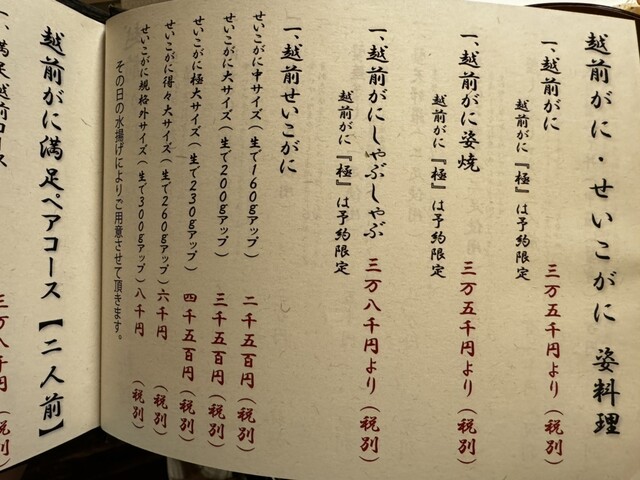 越前がに・せいこがに 姿料理
一、越前がに 三万五千円より(税別)
越前がに『極』は予約限定
一、越前がに姿焼 三万五千円より(税別)
越前がに『極』は予約限定
一、越前がにしゃぶしゃぶ 三万八千円より(税別)
越前がに『極』は予約限定
一、越前せいこがに
せいこがに中サイズ(生で160gアップ) 二千五百円(税別)
せいこがに大サイズ(生で200gアップ) 三千五百円(税別)
せいこがに極大サイズ(生で230gアップ) 四千五百円(税別)
せいこがに得々大サイズ(生で260gアップ) 六千円(税別)
せいこがに規格外サイズ(生で300gアップ) 八千円(税別)
その日の水揚げによりご用意させて頂きます。
越前がに満足ペアコース【二人前】
一、満足越前コース 三万八千円(税別)